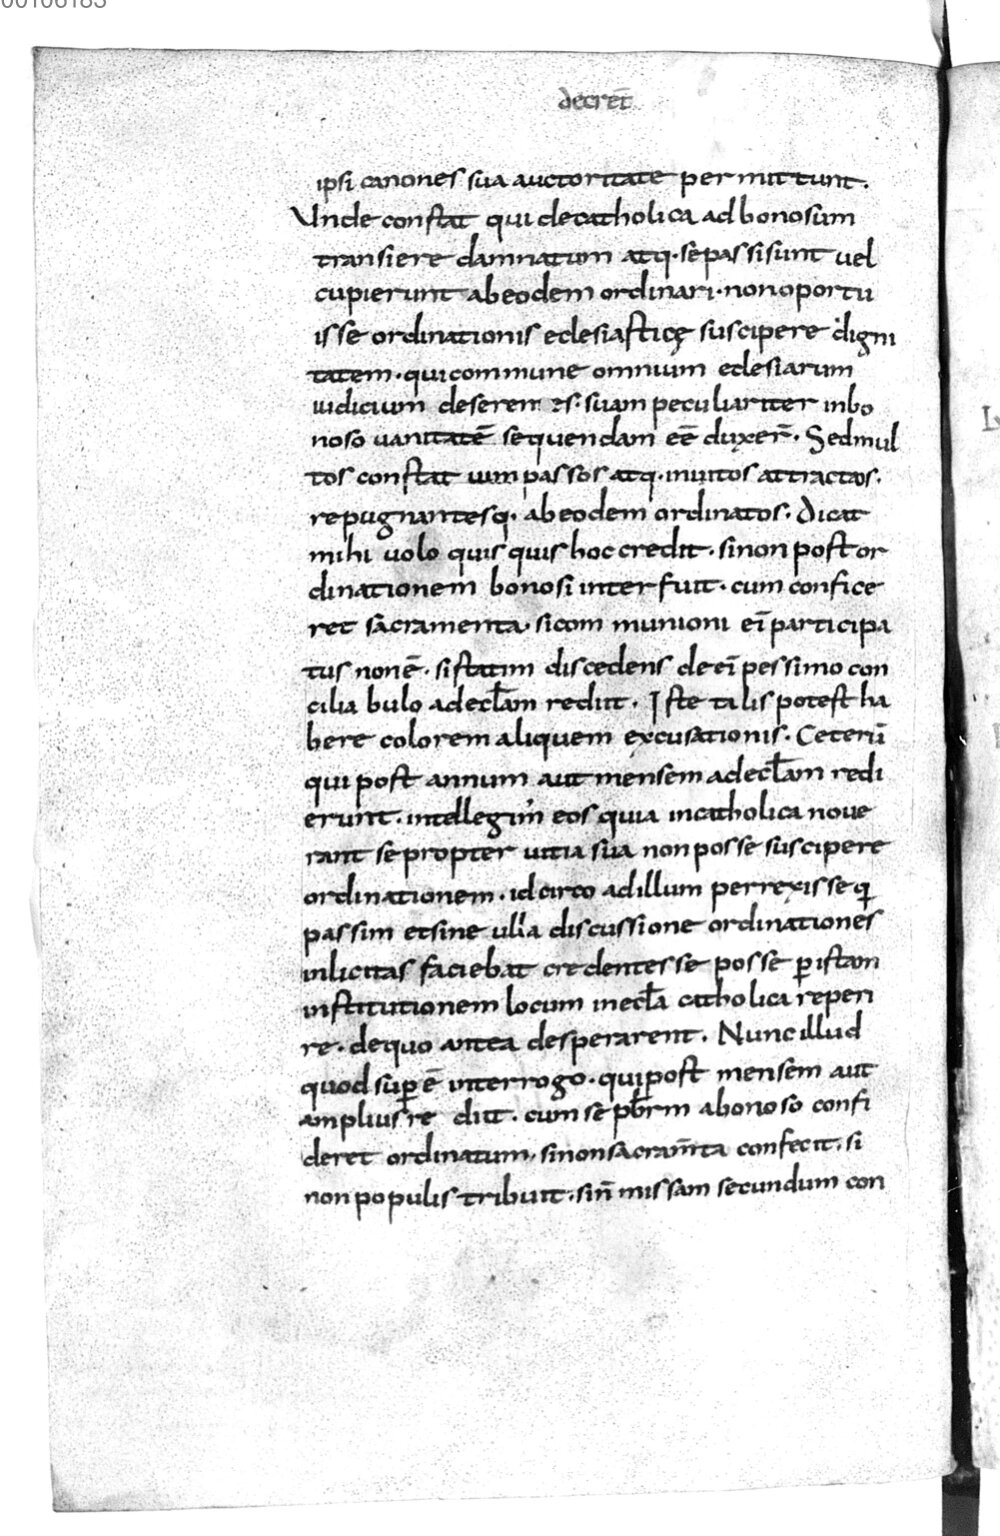 decret̄
ipsi canones sua auctoritate permittunt.
Unde constat qui de catholica ad bonosum
transiere damnatum atq· se passi sunt vel
cupierunt ab eodem ordinari· non oportu
isse ordinationis eclesiasticę suscipere digni
tatem· qui commune omnium eclesiarum
iudicium deserentes· suam peculiariter in bo
noso vanitatē sequendam eē duxer̄· Sed mul
tos constat vim passos atq· invitos attractos·
repugnantesq· ab eodem ordinatos· Dicat
mihi volo quis quis hoc credit· si non post or
dinationem bonosi interfuit· cum confice
ret sacramenta· si communioni eī participa
tus non ē· si statim discedens de eī pessimo con
cilia bulo ad ecl̄am rediit· Iste talis potest ha
bere colorem aliquem excusationis· Ceterū
qui post annum aut mensem ad ecl̄am redi
erunt· intellegim̓ eos quia in catholica nove
rant se propter vitia sua non posse suscipere
ordinationem· id circo ad illum perrexisse q̄
passim et sine ulla discussione ordinationes
inlicitas faciebat credentes se posse p̄ istam
institutionem locum in ecl̄a catholica reperi
re· de quo antea desperarent· Nunc illud
quod sup̄ ē interrogo· qui post mensem aut
amplius re diit· cum se pb̄rm a bonoso confi
deret ordinatum· si non sacram̄ta confecit· si
non populis tribuit· si n̄ missam secundum con